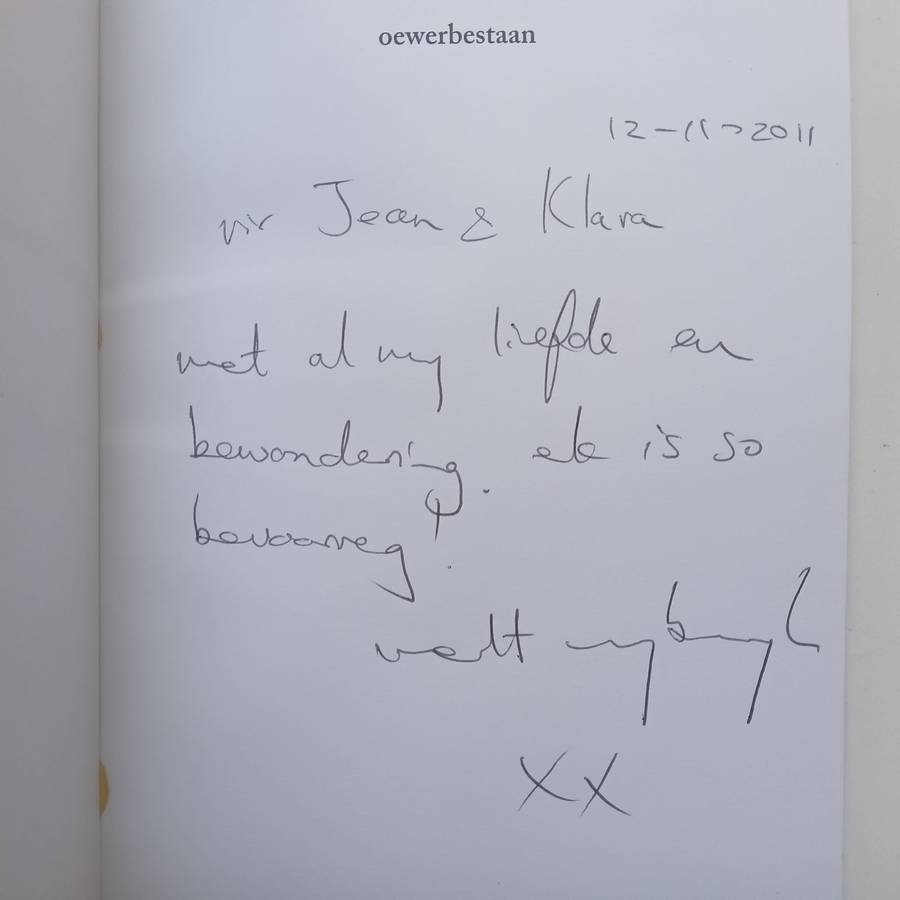 oewerbestaan
12-11-2011
vir Jean & Klara
met al my liefde en
bewondering. ek is so
bevoorreg!
melt myburgh
XX